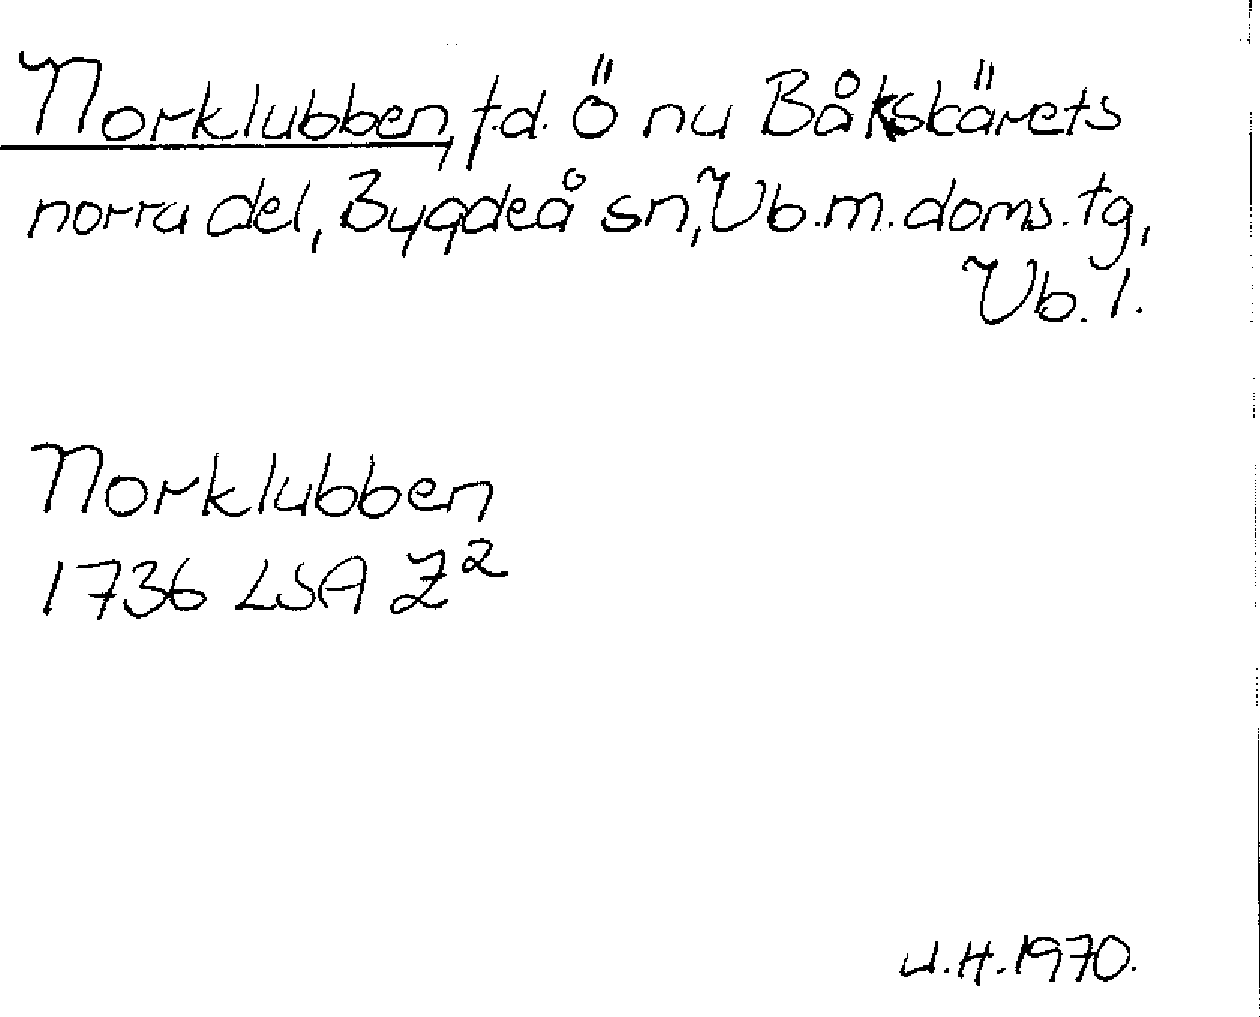 Norklubben, f.d. ö nu Båkskärets
norra del, Bygdeå sn, Vb.m.doms.tg,
Vb. l.
Norklubben
1736 LSA Z²
U.H.1970.